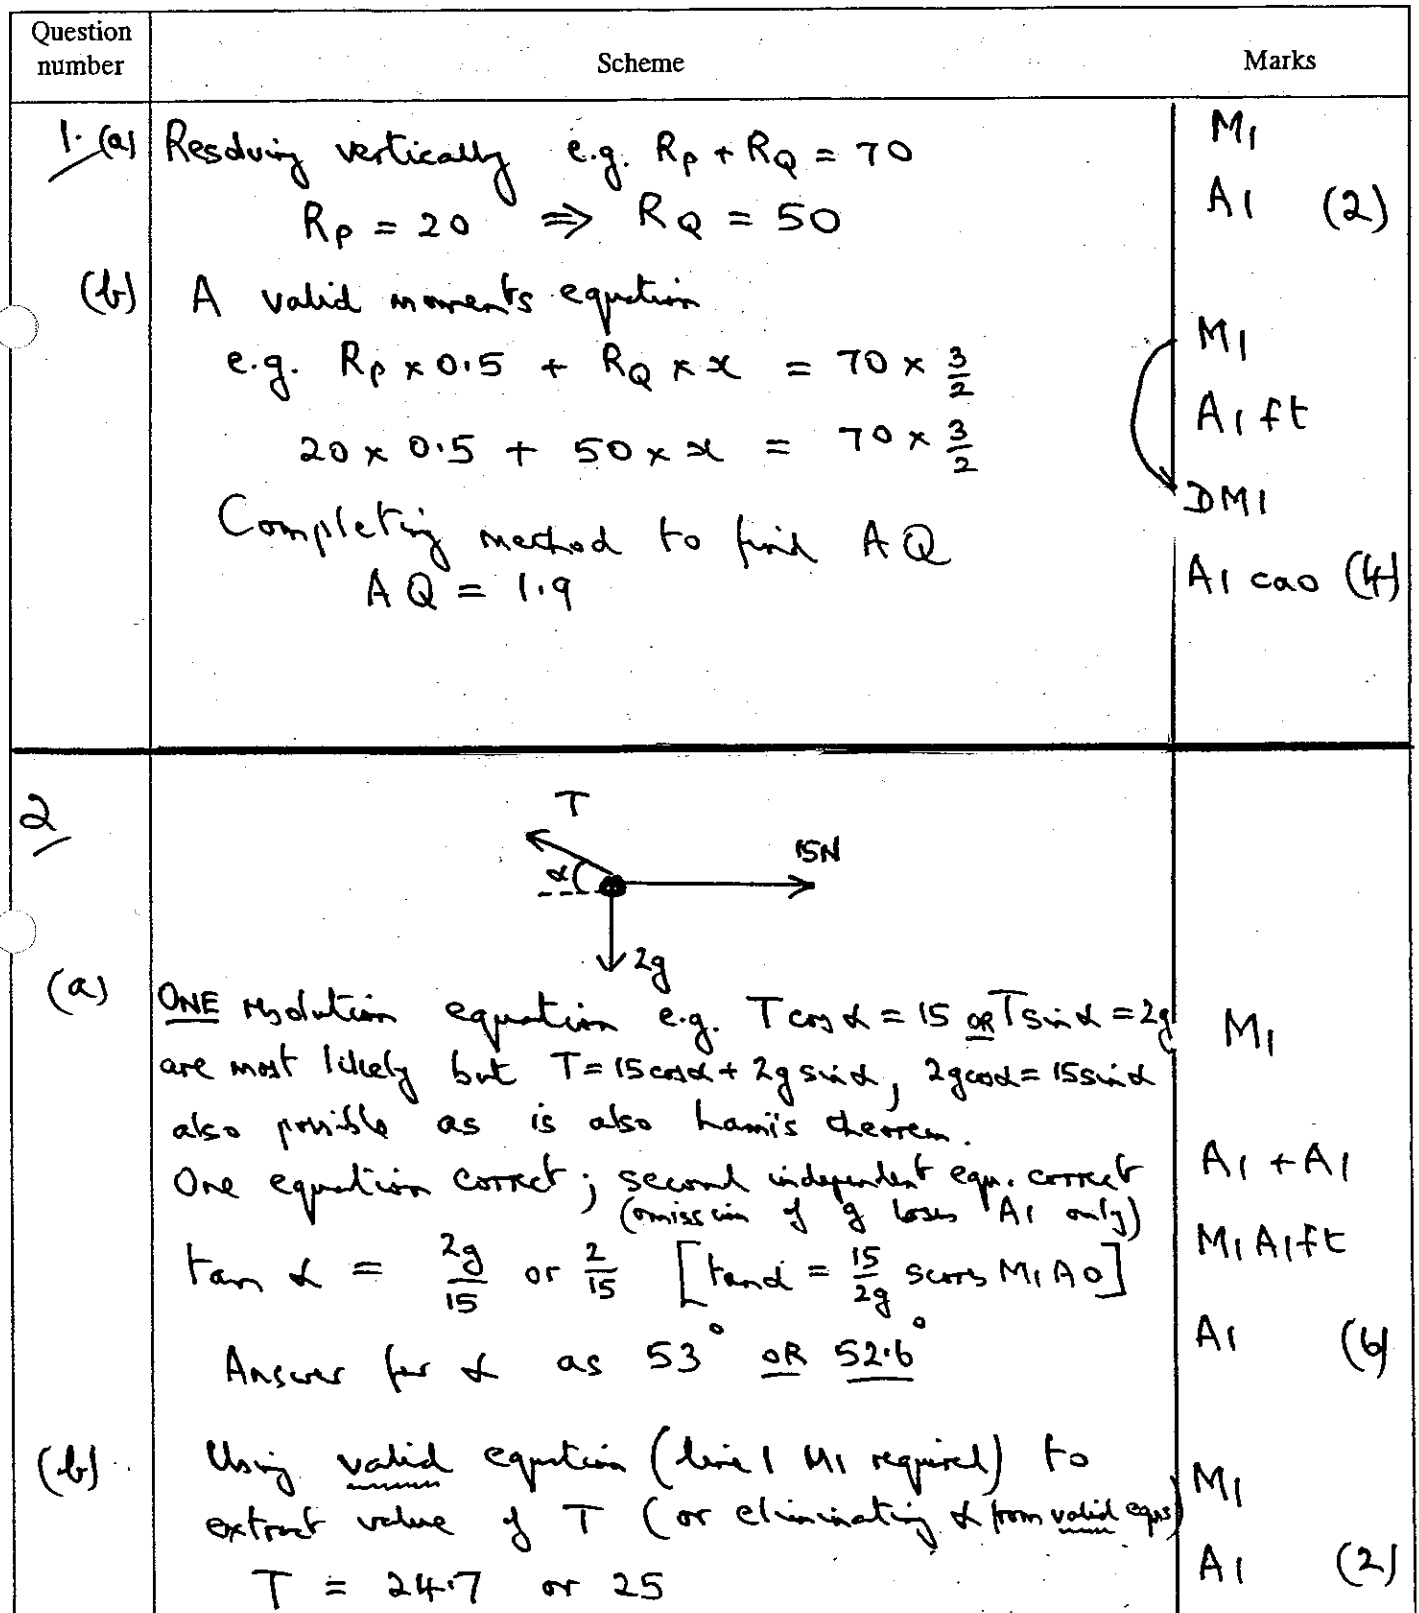 Question number Scheme Marks
1. (a) Resolving vertically e.g. R_P + R_Q = 70 M1
R_P = 20 ⇒ R_Q = 50 A1 (2)
(b) A valid moments equation
e.g. R_P × 0.5 + R_Q × x = 70 × 3/2 M1
20 × 0.5 + 50 × x = 70 × 3/2 A1 ft
Completing method to find AQ DM1
AQ = 1.9 A1 cao (4)
2
T
15N
α
2g
(a) ONE resolution equation e.g. T cos α = 15 OR T sin α = 2g M1
are most likely but T = 15 cos α + 2g sin α, 2g cos α = 15 sin α
also possible as is also Lami's theorem.
One equation correct; second independent eqn. correct A1 + A1
(omission of g loses A1 only)
tan α = 2g/15 or 2/15 [tan α = 15/2g scores M1 A0] M1 A1 ft
Answer for α as 53° OR 52.6° A1 (6)
(b) Using valid equation (line 1 M1 required) to
extract value of T (or eliminating α from valid eqns) M1
T = 24.7 or 25 A1 (2)